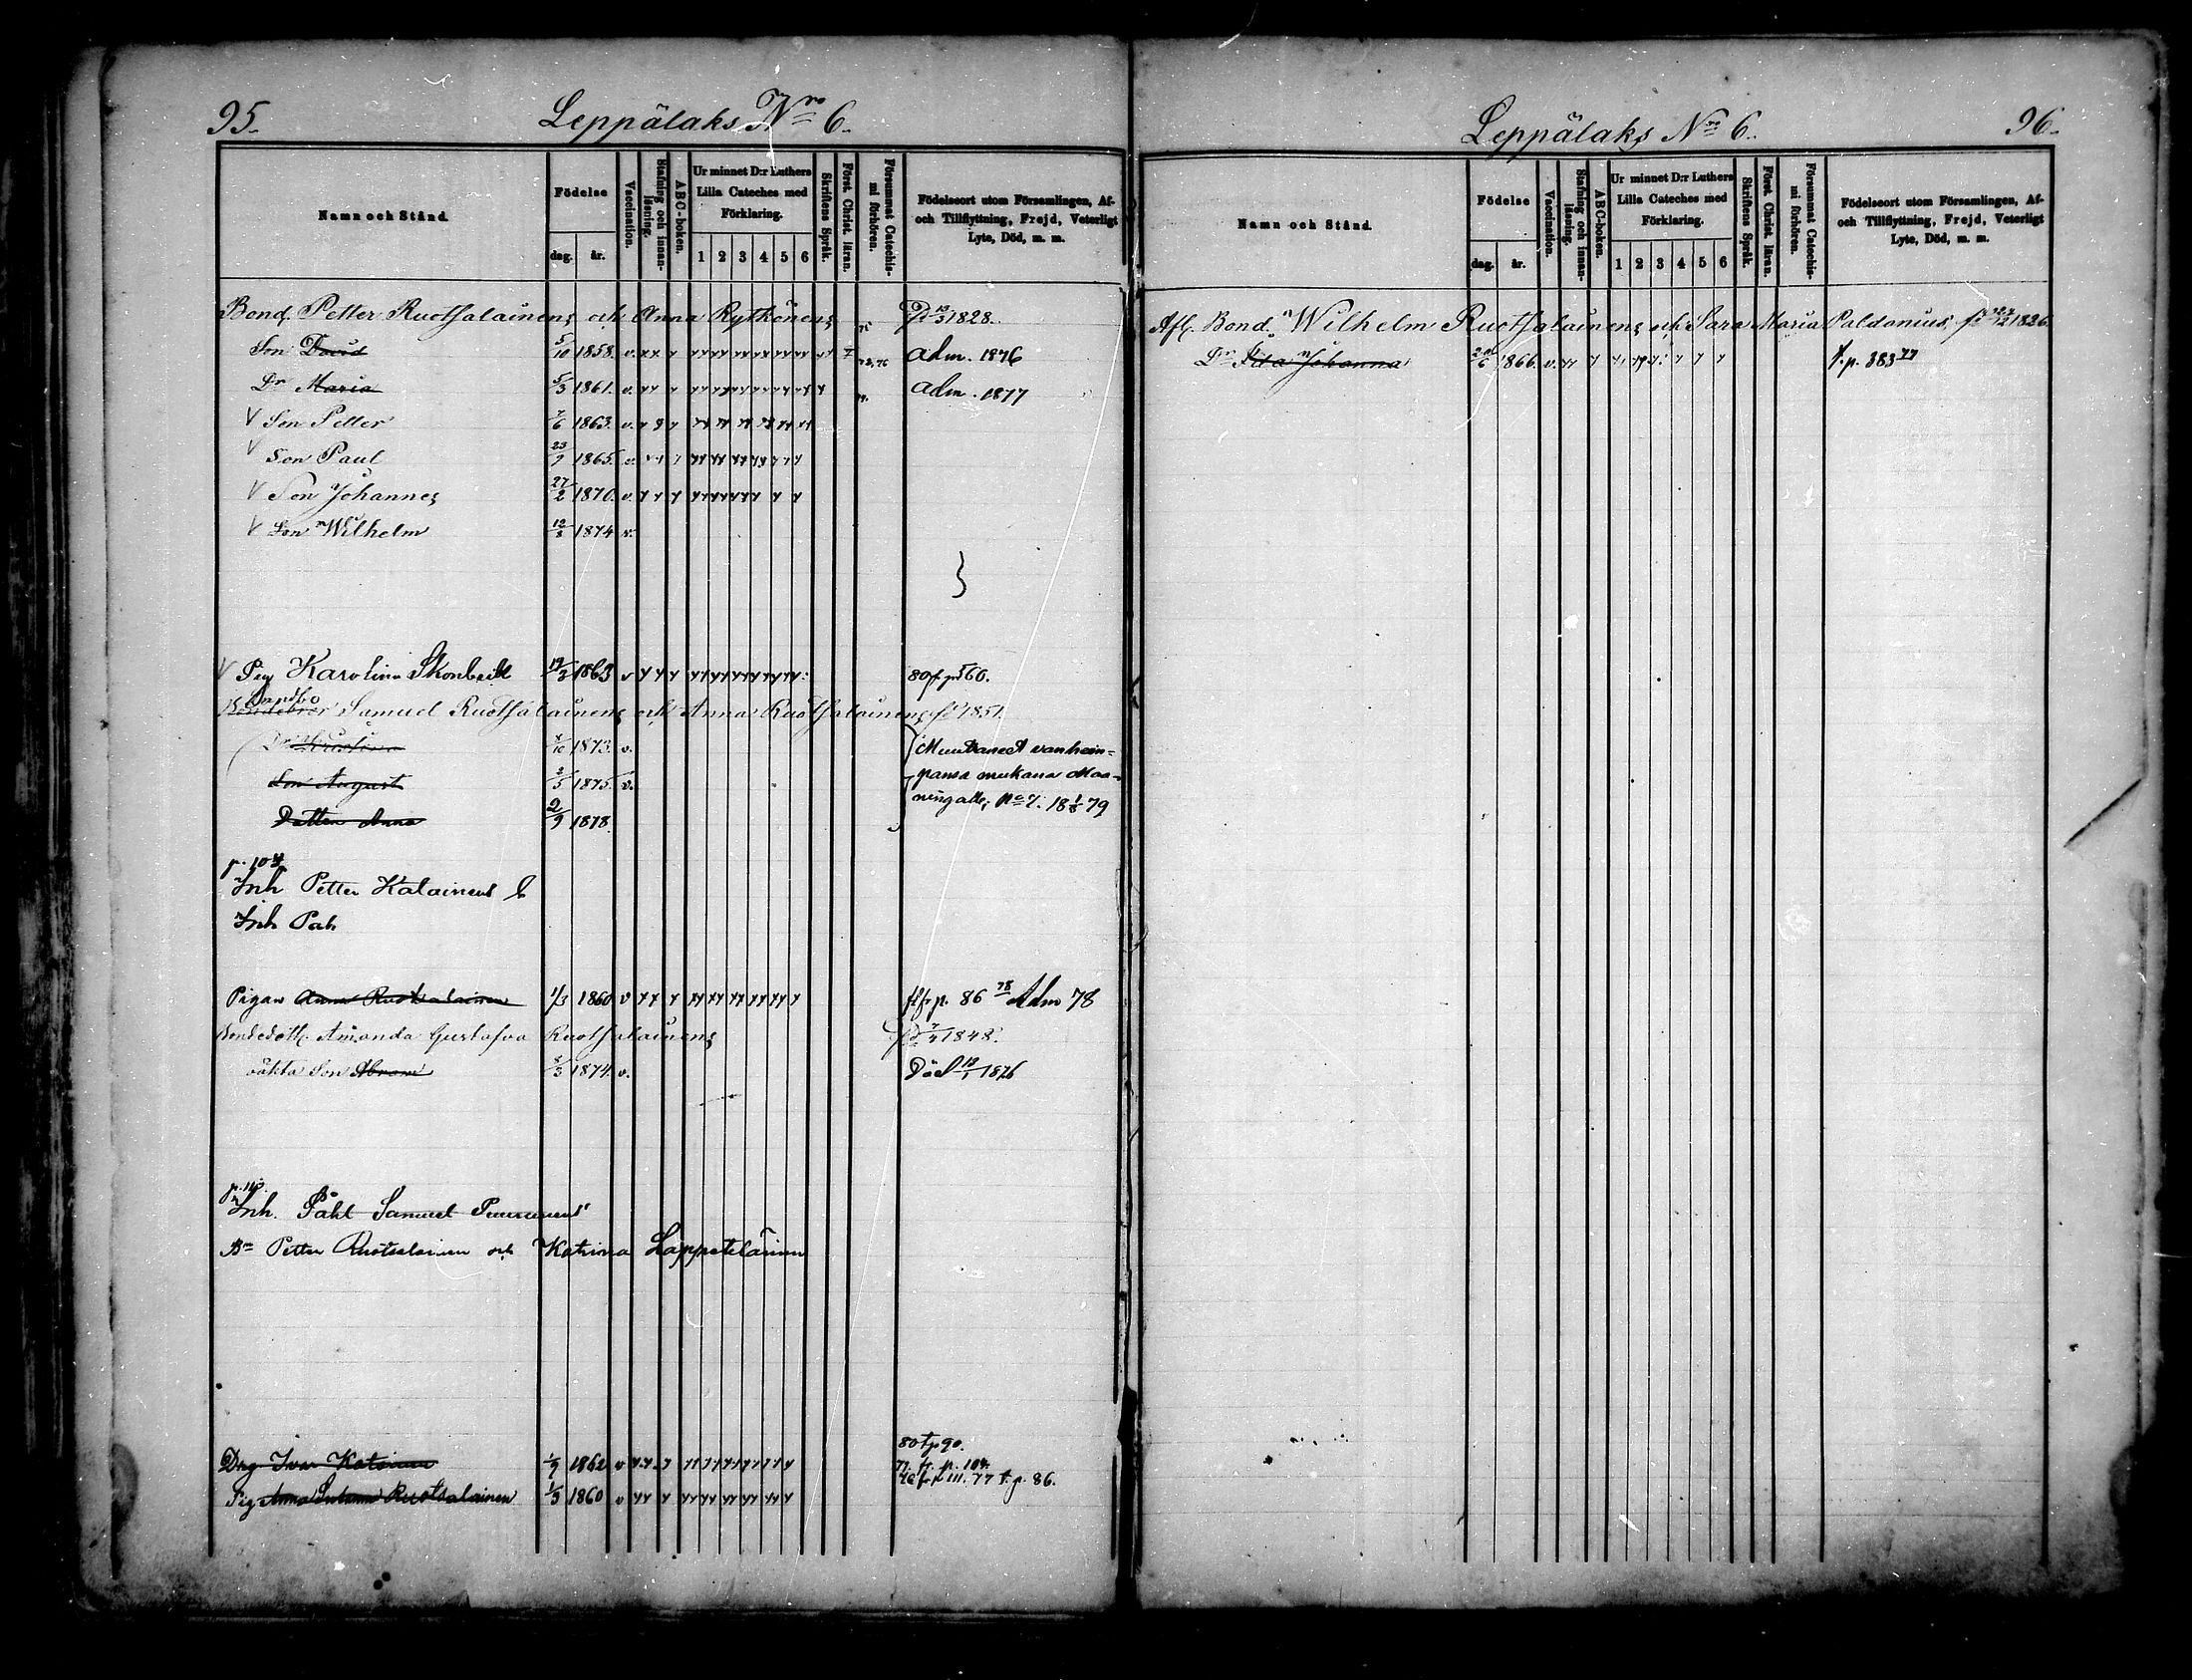 95.
Leppälaks Nro 6.
Namn och Stånd.
Födelse
dag. år.
Vaccination.
Stafning och innanläsning.
ABC-boken.
Ur minnet D:r Luthers Lilla Cateches med Förklaring.
1 2 3 4 5 6
Skriftens Språk.
Först. Christ. läran.
Försummat Catechismi förhören.
Födelseort utom Församlingen, Af- och Tillflyttning, Frejd, Veterligt Lyte, Död, m. m.
Bond. Petter Ruotsalainens och Anna Rytkönens 1828.
Son David 5/10 1858. v. adm. 1876
Dr Maria 5/3 1861. v. adm. 1877
V Son Petter 7/6 1863. v.
V Son Paul 23/9 1865. v.
V Son Johannes 27/2 1870. v.
V Son Wilhelm 1874 v.
V Pig Karolina 1863 v 80 f. p 560.
Samuel Ruotsalainens och Anna Ruotsalainens 1851.
/10 1873. v. Muuttaneet vanhem-
Son August 3/5 1875. v. pansa mukana Maa-
ningalle, No 7. 18 1/8 79
Dotter Anna 2/9 1878.
p. 104
Inh Petter Kalainens
Inh Pah
Pigan Anna Ruotsalainen 1/3 1860 v p. 86 78 Adm 78
Amanda Gustafva Ruotsalainens 1848.
oäkta Son Abram 1874. v. Död 1876
Inh. Påhl Samuel
Bn Petter Ruotsalainen och Katrina Lappeteläinen
80 t p 90.
Drg Ivar 1/9 1862 v 77. f. p. 104.
f p 111. 77 t. p. 86.
Pig Anna Ruotsalainen 1/3 1860 v
Leppälaks Nro 6.
96.
Namn och Stånd.
Födelse
dag. år.
Vaccination.
Stafning och innanläsning.
ABC-boken.
Ur minnet D:r Luthers Lilla Cateches med Förklaring.
1 2 3 4 5 6
Skriftens Språk.
Först. Christ. läran.
Försummat Catechismi förhören.
Födelseort utom Församlingen, Af- och Tillflyttning, Frejd, Veterligt Lyte, Död, m. m.
Afl. Bond. Wilhelm Ruotsalainens och Sara Maria Paldanius, 1826.
Dr Ida Johanna 1866. v. t. p. 383 77